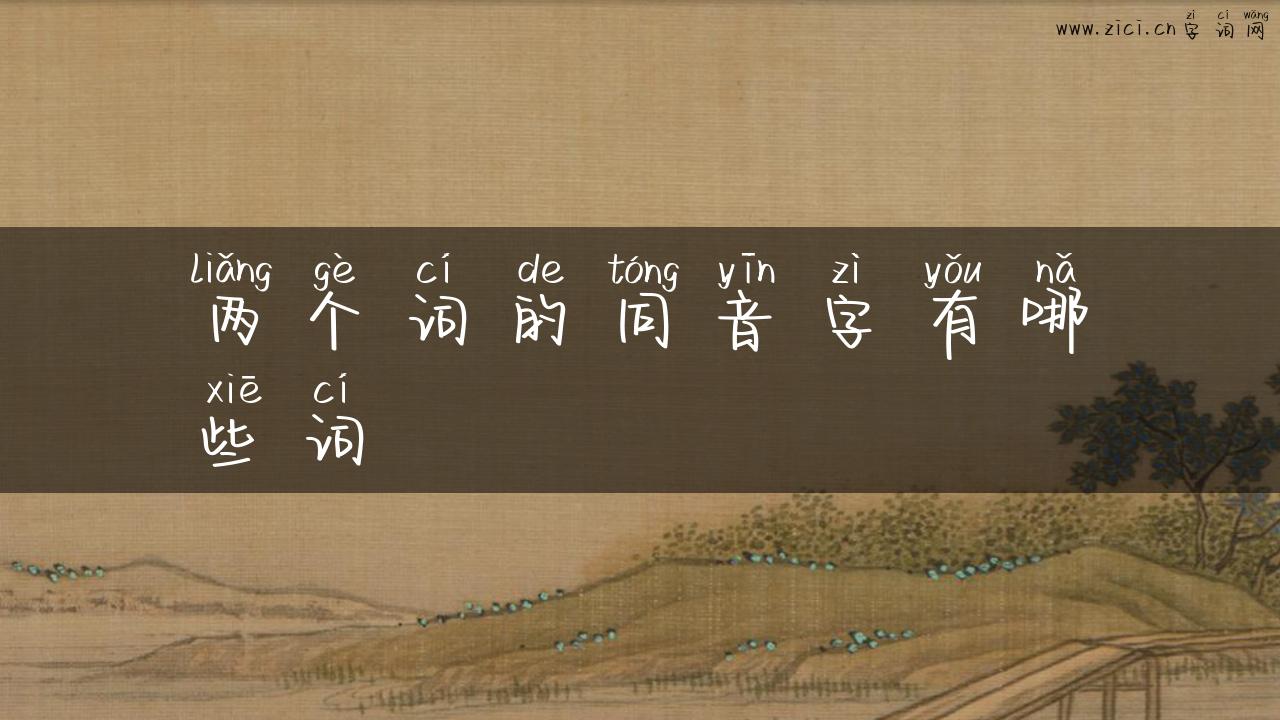 zì cí wǎng
www.zici.cn字词网
liǎng gè cí de tóng yīn zì yǒu nǎ
两个词的同音字有哪
xiē cí
些词